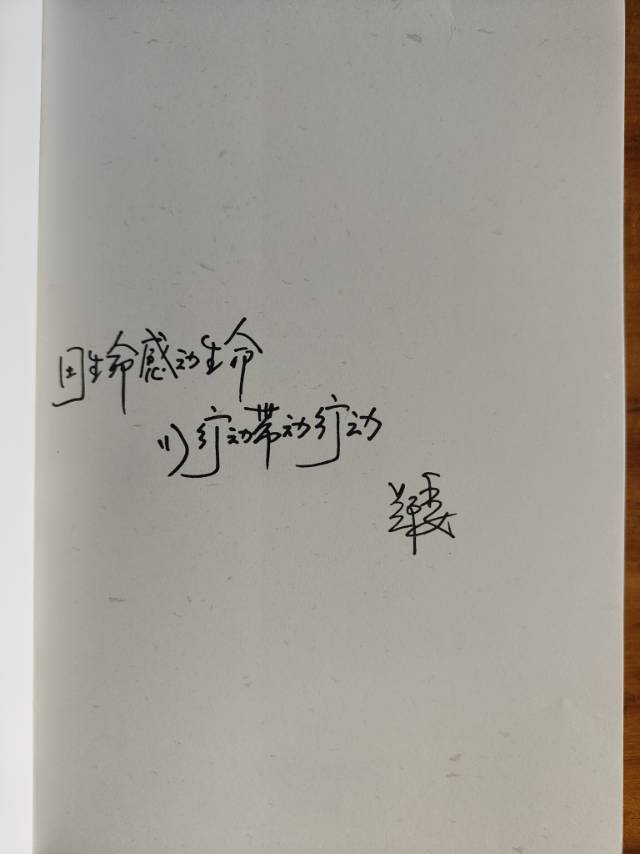 用生命感动生命
以行动带动行动